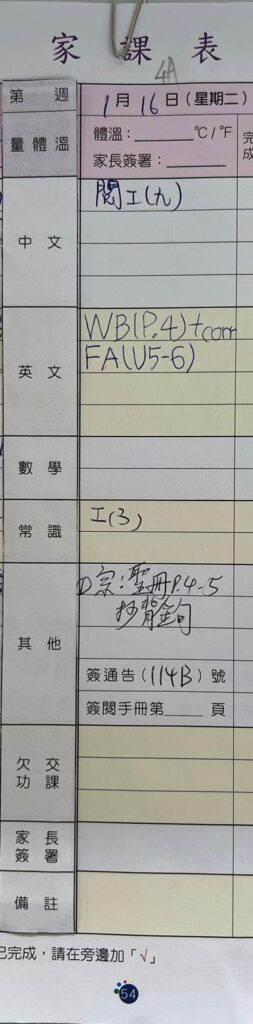 家課表
4A
第 週 1月16日(星期二)
量體溫 體溫:______℃/℉ 完成
家長簽署:______
中文 閱工(九)
英文 WB(P.4)+corr
FA(U5-6)
數學
常識 工(3)
其他 ①宗:聖冊P.4-5
抄背金句
簽通告(114B)號
簽閱手冊第____頁
欠交功課
家長簽署
備註
已完成,請在旁邊加「√」
54